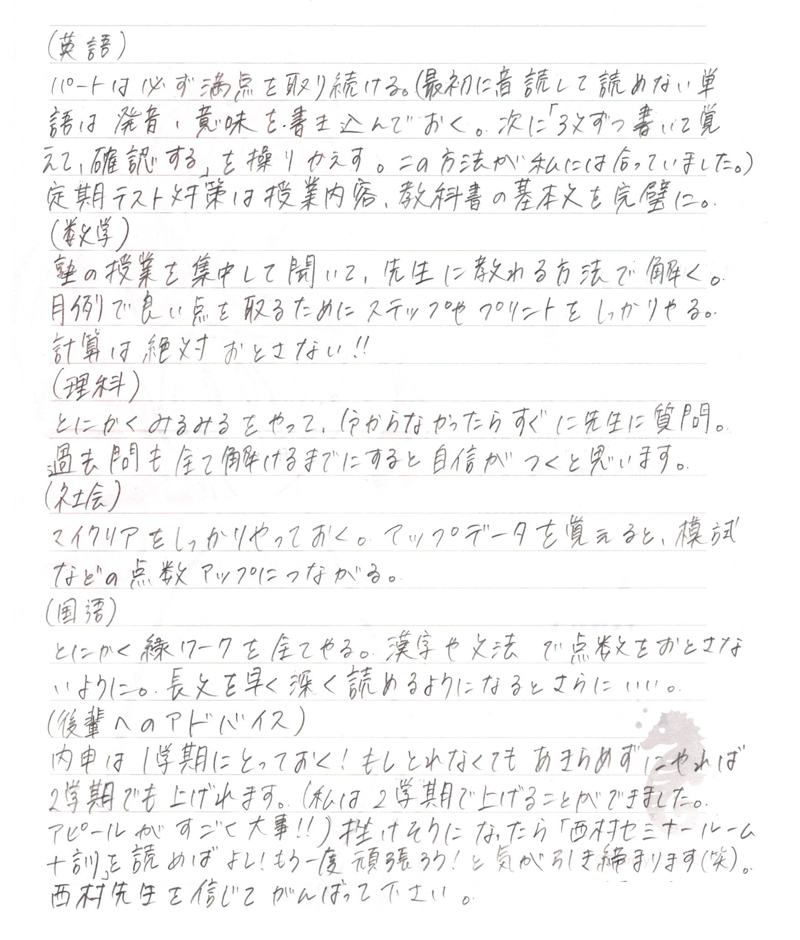 (英語)
パートは必ず満点を取り続ける。(最初に音読して読めない単
語は発音、意味を書き込んでおく。次に「3文ずつ書いて覚
えて、確認する」を操りかえす。この方法が私には合っていました。)
定期テスト対策は授業内容、教科書の基本文を完璧に。
(数学)
塾の授業を集中して聞いて、先生に教わる方法で解く。
月例で良い点を取るためにステップやプリントをしっかりやる。
計算は絶対おとさない!!
(理科)
とにかくみるみるをやって、分からなかったらすぐに先生に質問。
過去問も全て解けるまでにすると自信がつくと思います。
(社会)
マイクリアをしっかりやっておく。アップデータを覚えると、模試
などの点数アップにつながる。
(国語)
とにかく緑ワークを全てやる。漢字や文法で点数をおとさな
いように。長文を早く深く読めるようになるとさらにいい。
(後輩へのアドバイス)
内申は1学期にとっておく!もしとれなくてもあきらめずにやれば
2学期でも上げれます。(私は2学期で上げることができました。
アピールがすごく大事!!)挫けそうになったら「西村セミナールーム
十訓」を読めばよし!もう一度頑張ろう!と気が引き締まります(笑)。
西村先生を信じてがんばって下さい。